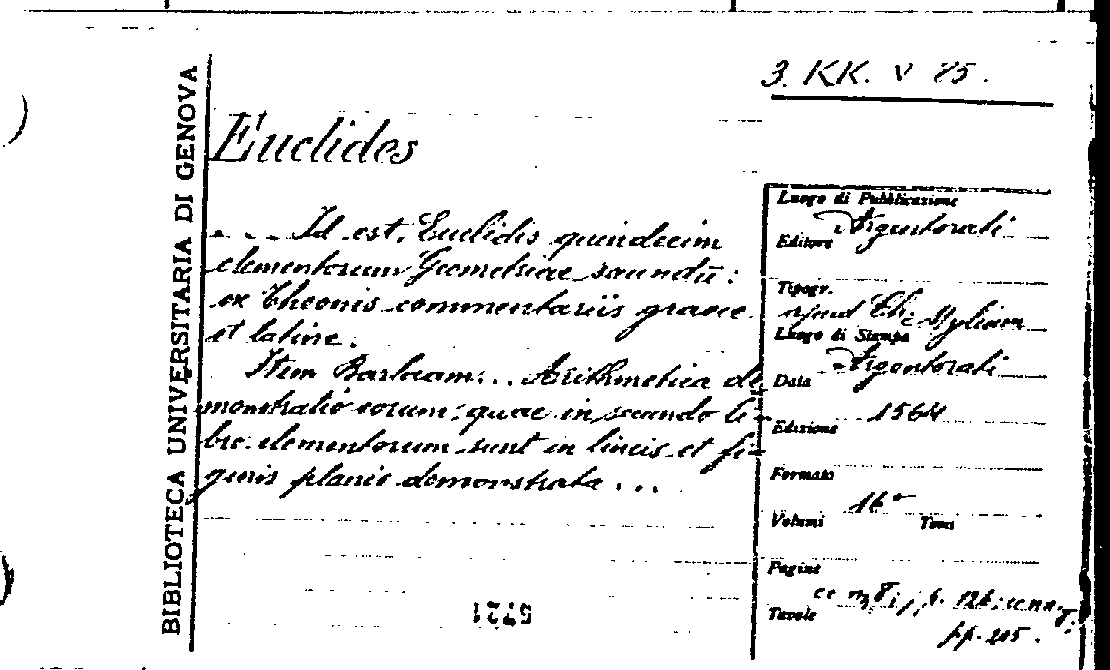 3. KK. V 85.
BIBLIOTECA UNIVERSITARIA DI GENOVA
Euclides
... Id est, Euclidis quindecim
elementorum Geometriae secundū:
ex Theonis commentariis graece
et latine.
Item Barlaam... Arithmetica de
monstratio eorum, quae in secundo li-
bro elementorum sunt in lineis et fi-
guris planis demonstrata ...
Luogo di Pubblicazione
Argentorati
Editore
Tipogr.
apud Ch: Mylium
Luogo di Stampa
Argentorati
Data
1564
Edizione
Formato
16°
Volumi Tomi
Pagine
Tavole
pp. 205.
5721